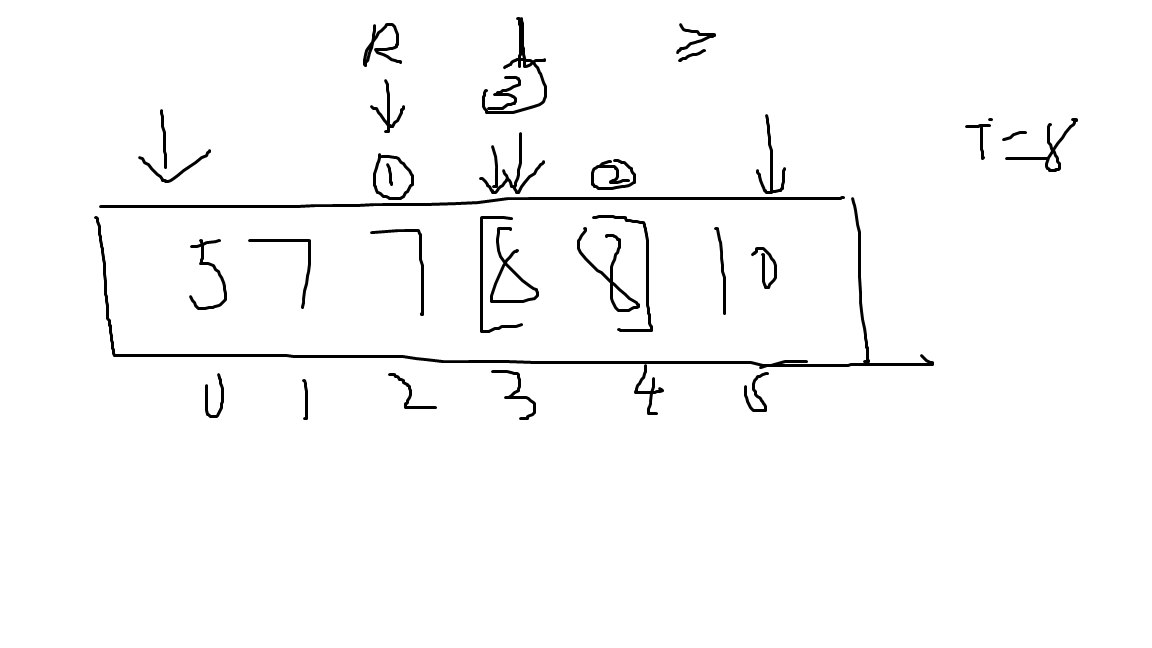 R L ≥
③
T=8
① ②
5 7 7 [8 8] 10
0 1 2 3 4 5